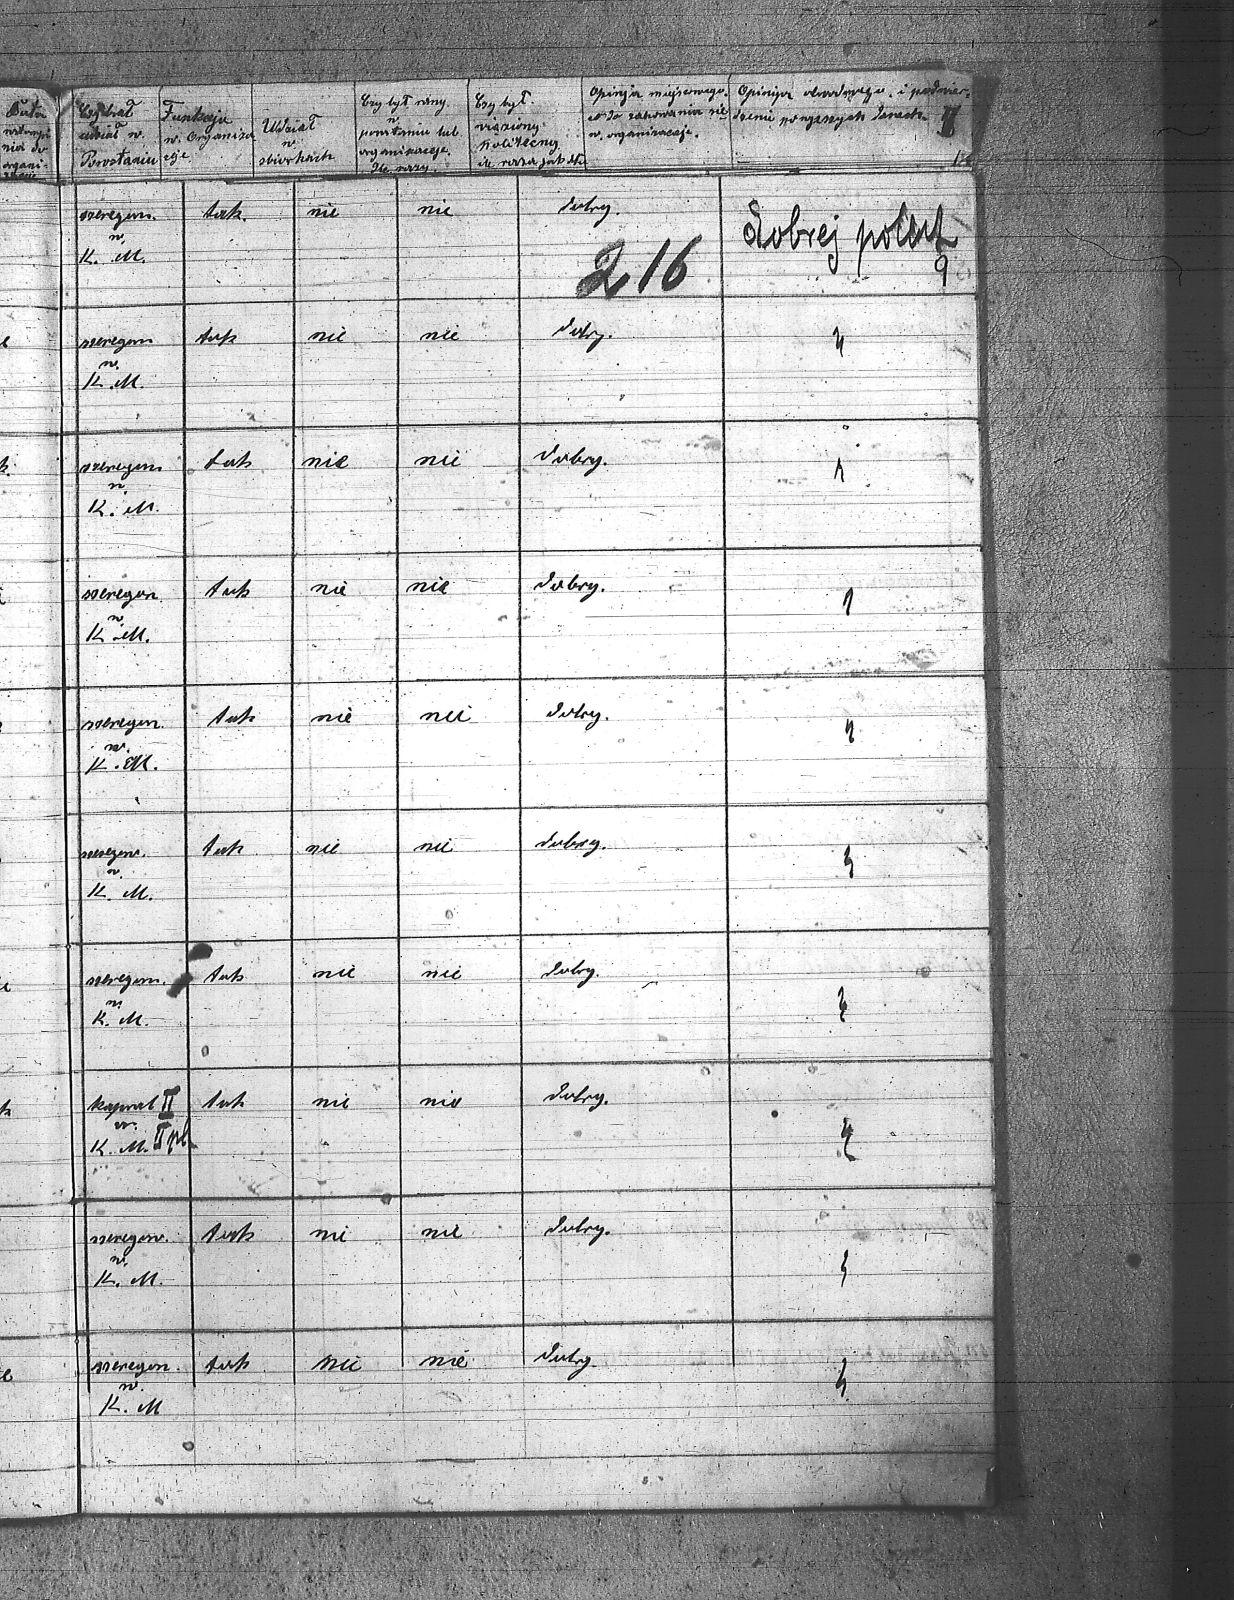 Data
Czy brał
udział w.
Powstaniu
Funkcja
w. Organiza
cyje
Udział
w
zbiorkach
Czy był rany
w
powstaniu lub
organizacyje.
Ile razy.
Czy był
więziony
politeczny
ile razy jak dł.
Opinja miejscowego
co do zachowania się
w. organizacyje.
Opinija i podwier-
dzenie powyższych Danch.
szeregow. tak nie nie dobry. Dobrej
w.
K. M.
216
szeregow tak nie nie dobry.
w.
K. M.
szeregow tak nie nie dobry.
w.
K. M.
szeregow tak nie nie dobry.
w.
K. M.
szeregow tak nie nie dobry.
w.
K. M.
szeregow. tak nie nie dobry.
w.
K. M.
szeregow. tak nie nie dobry.
w.
K. M.
kapral II tak nie nie dobry.
w.
K. M. II pl.
szeregow. tak nie nie dobry.
w.
K. M.
szeregow. tak nie nie dobry
w.
K. M